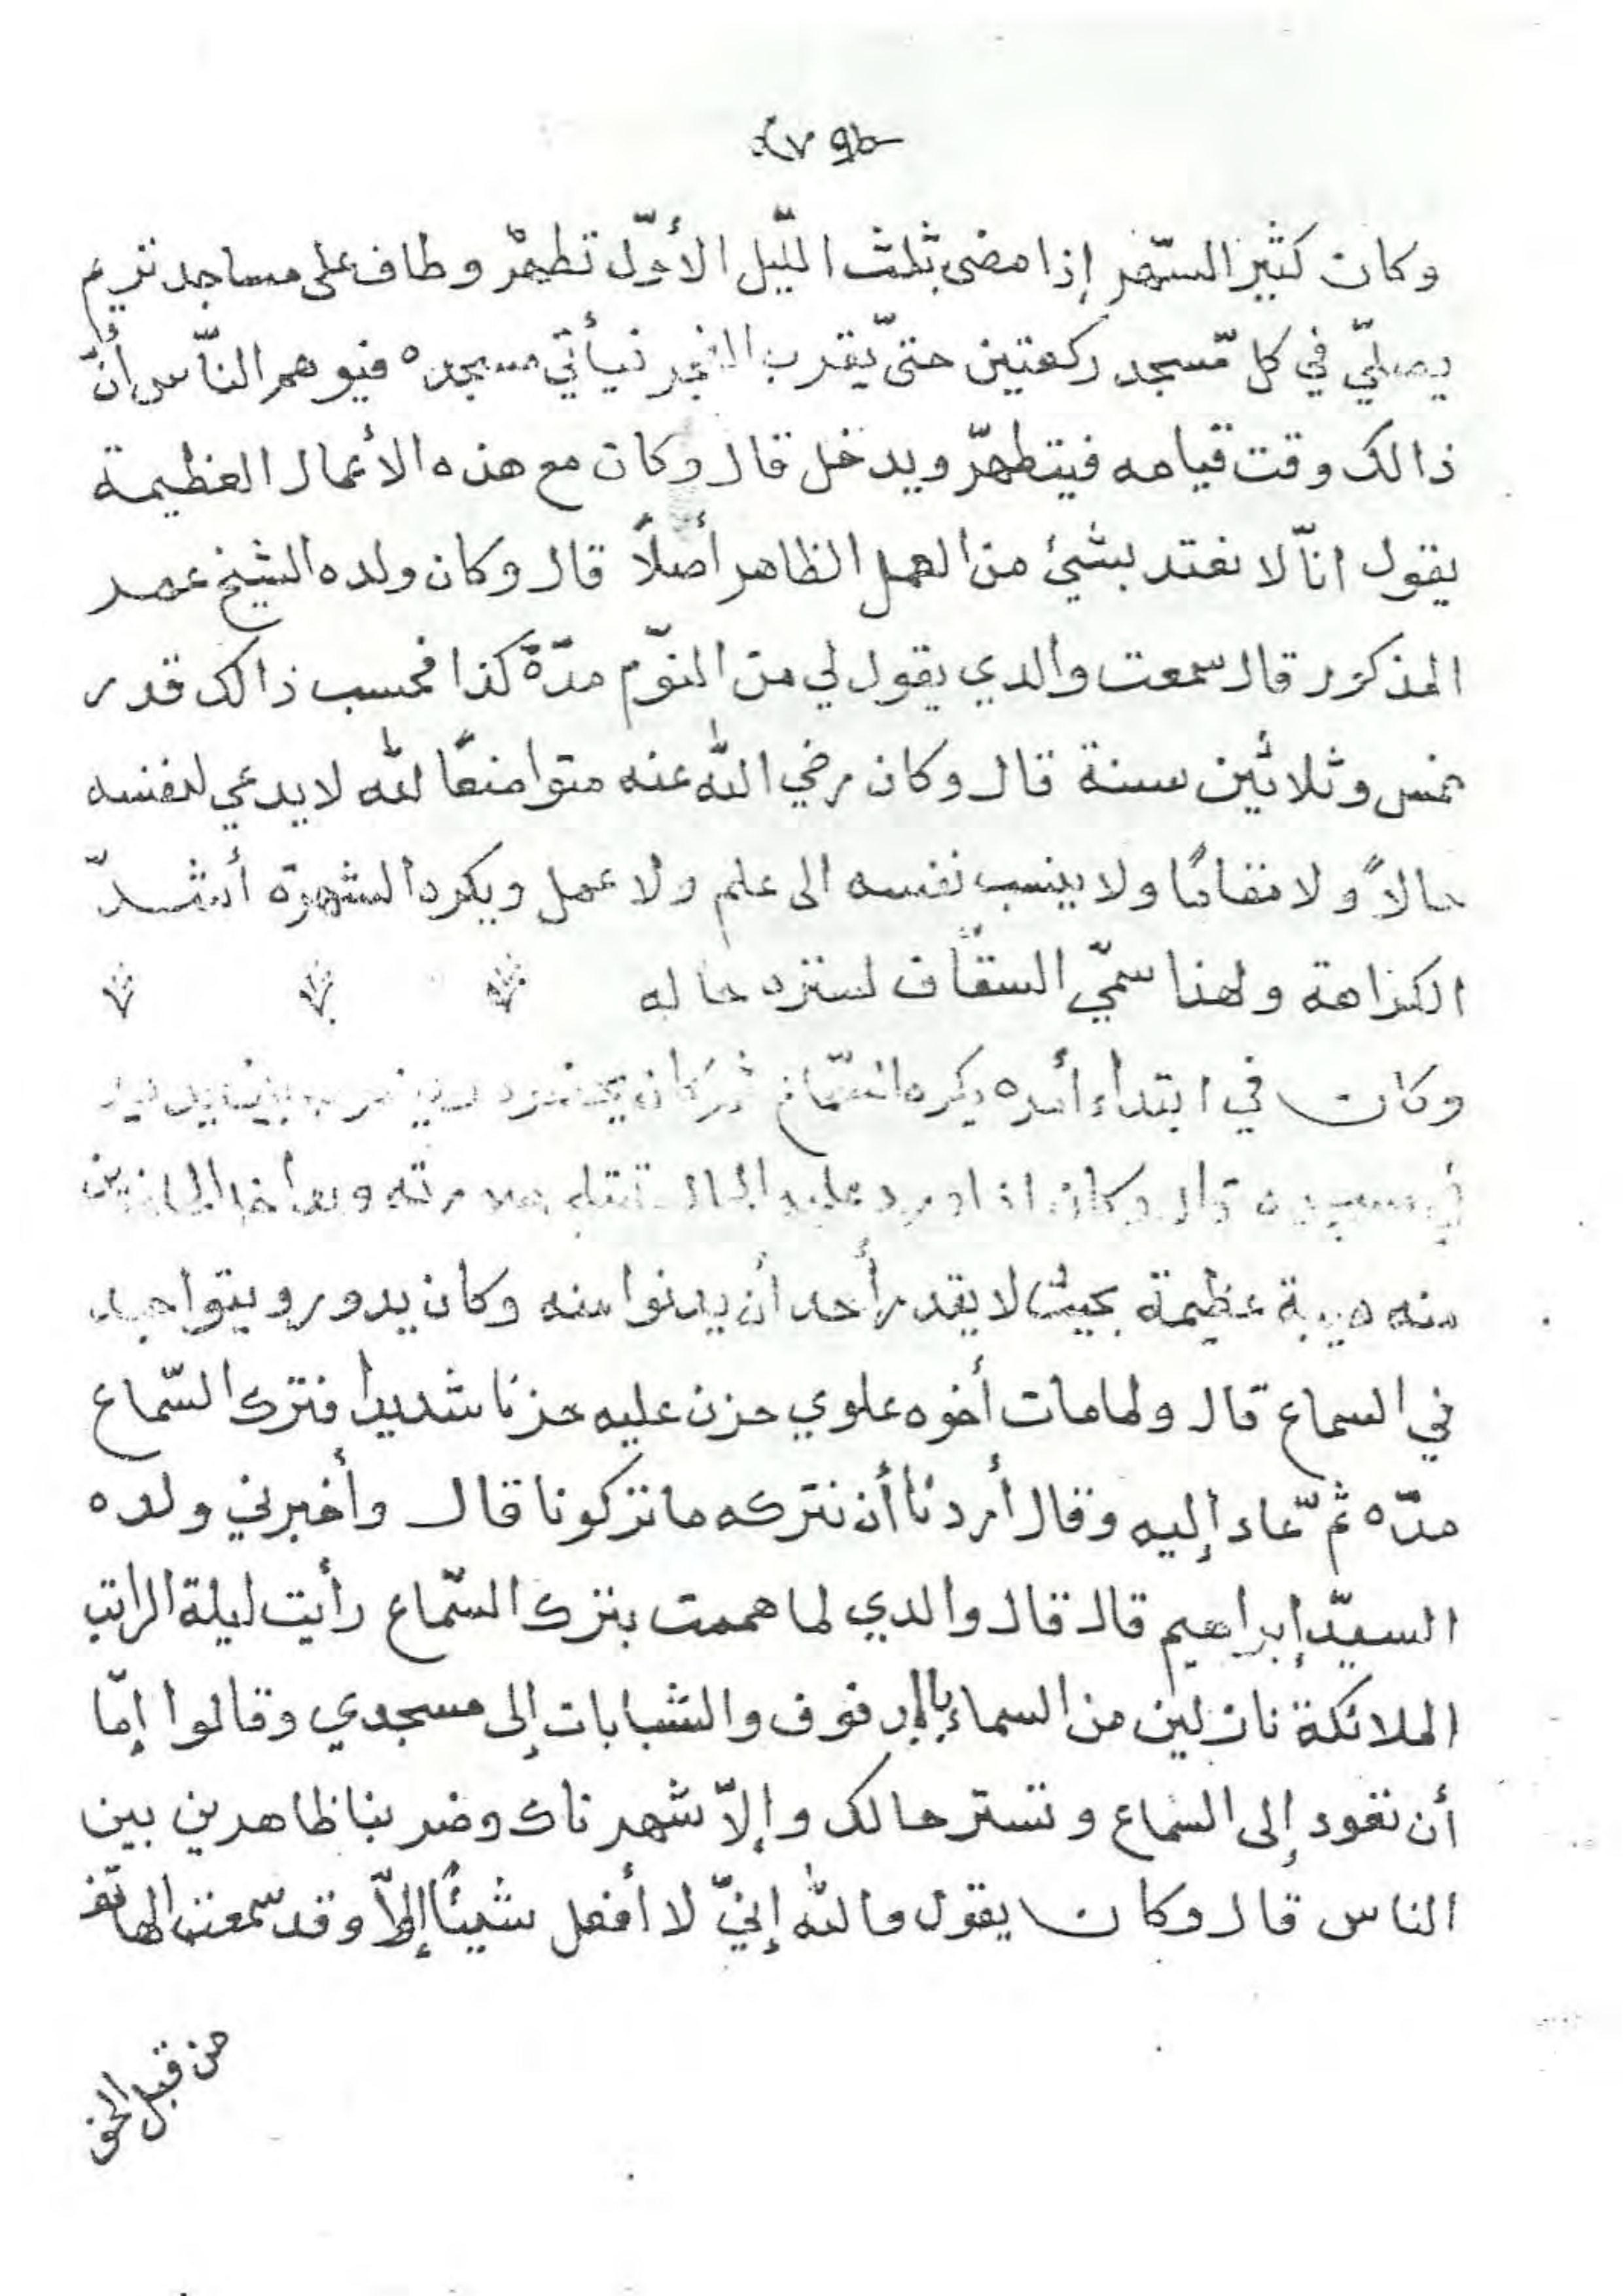 ٧٩
وكان كثير السّهر إذا مضى ثلث اللّيل الأوّل تطهّر وطاف على مساجد تريم
يصلّي في كل مّسجد ركعتين حتىّ يقرب الفجر فيأتي مسجده فيوهم النّاس أنّ
ذالك وقت قيامه فيتطهرّ ويدخل قال وكان مع هذه الأعمال العظيمة
يقول انّا لا نعتد بشيئ من العمل الظاهر أصلاً قال وكان ولده الشيخ عمر
المذكور قال سمعت والدي يقول لي من النوّم مدّة كذا فحسب ذالك قدر
خمس وثلاثين سنة قال وكان رضي الله عنه متواضعًا لله لا يدعي لنفسه
حالاً ولا مقامًا ولا ينسب نفسه الى علم ولا عمل ويكره الشهرة أشدّ
الكراهة ولهذا سمّي السقّاف لستره حاله
وكان في ابتداء أمره يكره السّماع ثم كان يحضره ويضرب بين يديه
في مسجده قال وكان اذا ورد عليه الحال تمتلي وتأخذ الحاضرين
منه هيبة عظيمة بحيث لا يقدر أحد أن يدنوا منه وكان يدور ويتواجد
في السماع قال ولما مات أخوه علوي حزن عليه حزنا شديدا فترك السّماع
مدّه ثمّ عاد إليه وقال أردنا أن نتركه ما تركونا قال وأخبرني ولده
السيدّ إبراهيم قال قال والدي لما هممت بترك السّماع رأيت ليلة الراتب
الملائكة نازلين من السماء بالدفوف والشبابات إلى مسجدي وقالوا إمّا
أن تعود إلى السماع وتستر حالك وإلاّ شهرناك وضربنا ظاهرين بين
الناس قال وكان يقول والله إنيّ لا أفعل شيئًا إلاّ وقد سّمعت الهاتف
من قبل الحق